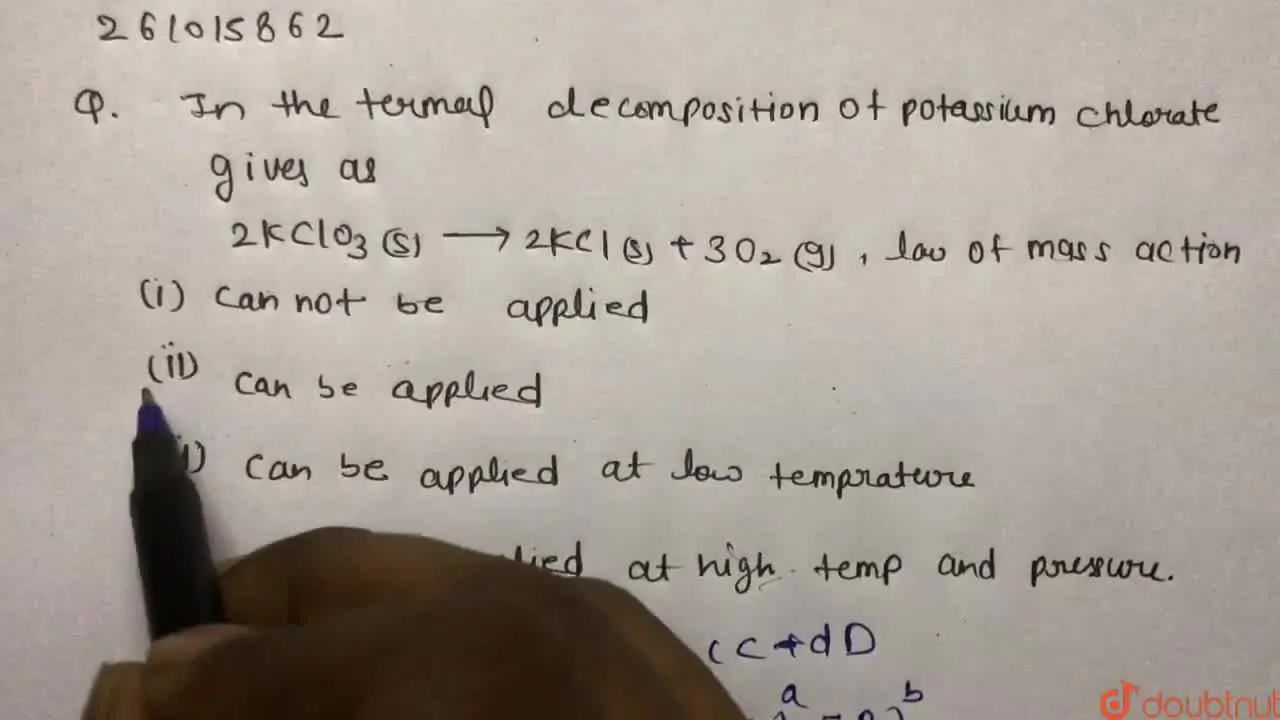 261015862
Q. In the termal decomposition of potassium chlorate
gives as
2KClO3 (s) → 2KCl (s) + 3O2 (g), law of mass action
(i) can not be applied
(ii) can be applied
can be applied at low temprature
at high temp and pressure.
cC + dD
a b
doubtnut